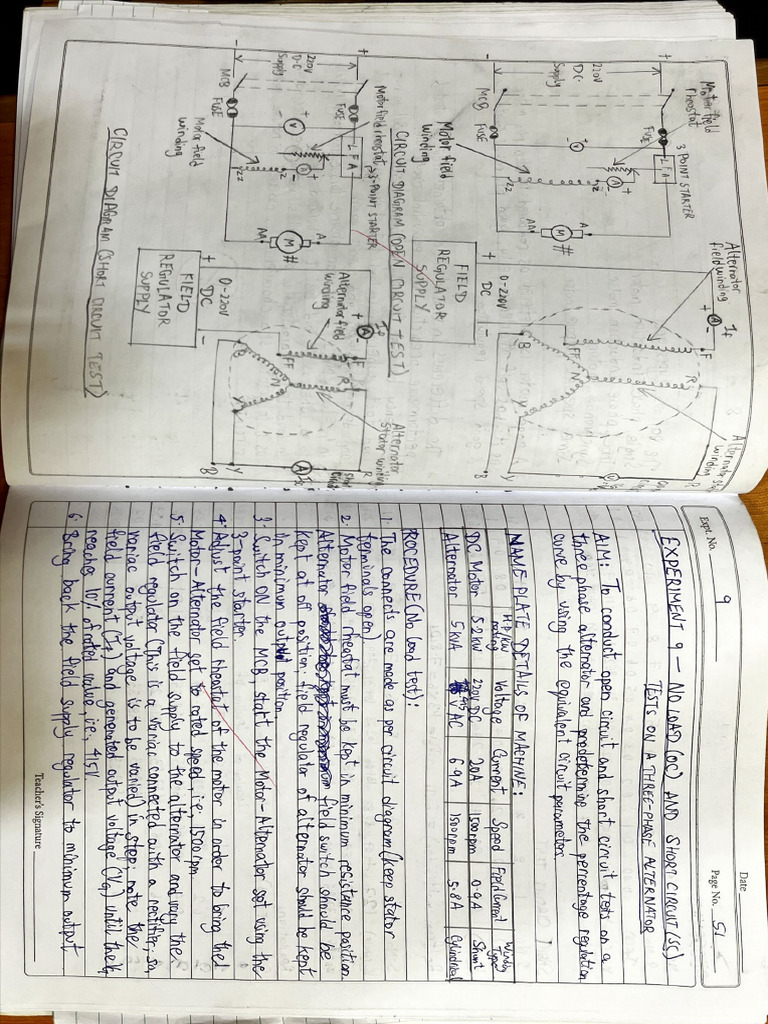 Expt. No. 9
Date
Page No. 51
EXPERIMENT 9 - NO LOAD (OC) AND SHORT CIRCUIT (SC)
TESTS ON A THREE-PHASE ALTERNATOR
AIM: To conduct open circuit and short circuit tests on a
three phase alternator and predetermine the percentage regulation
curve by using the equivalent circuit parameters.
NAME PLATE DETAILS OF MACHINE:
H.P/KW rating Voltage Current Speed Field Current Winding Type
DC Motor 5.2 KW 220V DC 20A 1500 rpm 0.9A Shunt
Alternator 5 KVA 415 V AC 6.9A 1500 rpm 5.8A Cylindrical
PROCEDURE (No load test):
1. The connects are made as per circuit diagram (keep stator
terminals open)
2. Motor field rheostat must be kept in minimum resistance position.
Alternator field switch should be
kept at off position, field regulator of alternator should be kept
in minimum output position
3. Switch ON the MCB, start the Motor-Alternator set using the
3-point starter.
4. Adjust the field rheostat of the motor in order to bring the
Motor-Alternator set to rated speed, i.e; 1500 rpm.
5. Switch on the field supply to the alternator and vary the
field regulator (This is a variac connected with a rectifier, so,
variac output voltage is to be varied) in step; note the
field current (If) and generated output voltage (Vg) until the Vg
reaches 10% of rated value, i.e; 415V
6. Bring back the field supply regulator to minimum output,
Teacher's Signature
+
220V
DC
Supply
-
MCB
FUSE
FUSE
Motor field
rheostat
3 POINT STARTER
L F A
V
A
+
-
Z
ZZ
Motor field
winding
A
M
AA
#
FIELD
REGULATOR
SUPPLY
+
0-220V
DC
-
Alternator
field winding
If
+
A
-
F
FF
R
N
B
Y
Alternator
winding
R
B
CIRCUIT DIAGRAM (OPEN CIRCUIT TEST)
+
220V
D-C
Supply
-
MCB
FUSE
FUSE
Motor field rheostat
3-POINT STARTER
L F A
V
A
+
-
Z
ZZ
Motor field
winding
A
M
AA
#
FIELD
REGULATOR
SUPPLY
+
0-220V
DC
-
Alternator field
winding
If
+
A
-
F
FF
R
N
B
Y
Alternator
Stator winding
R
Y
B
CIRCUIT DIAGRAM (SHORT CIRCUIT TEST)